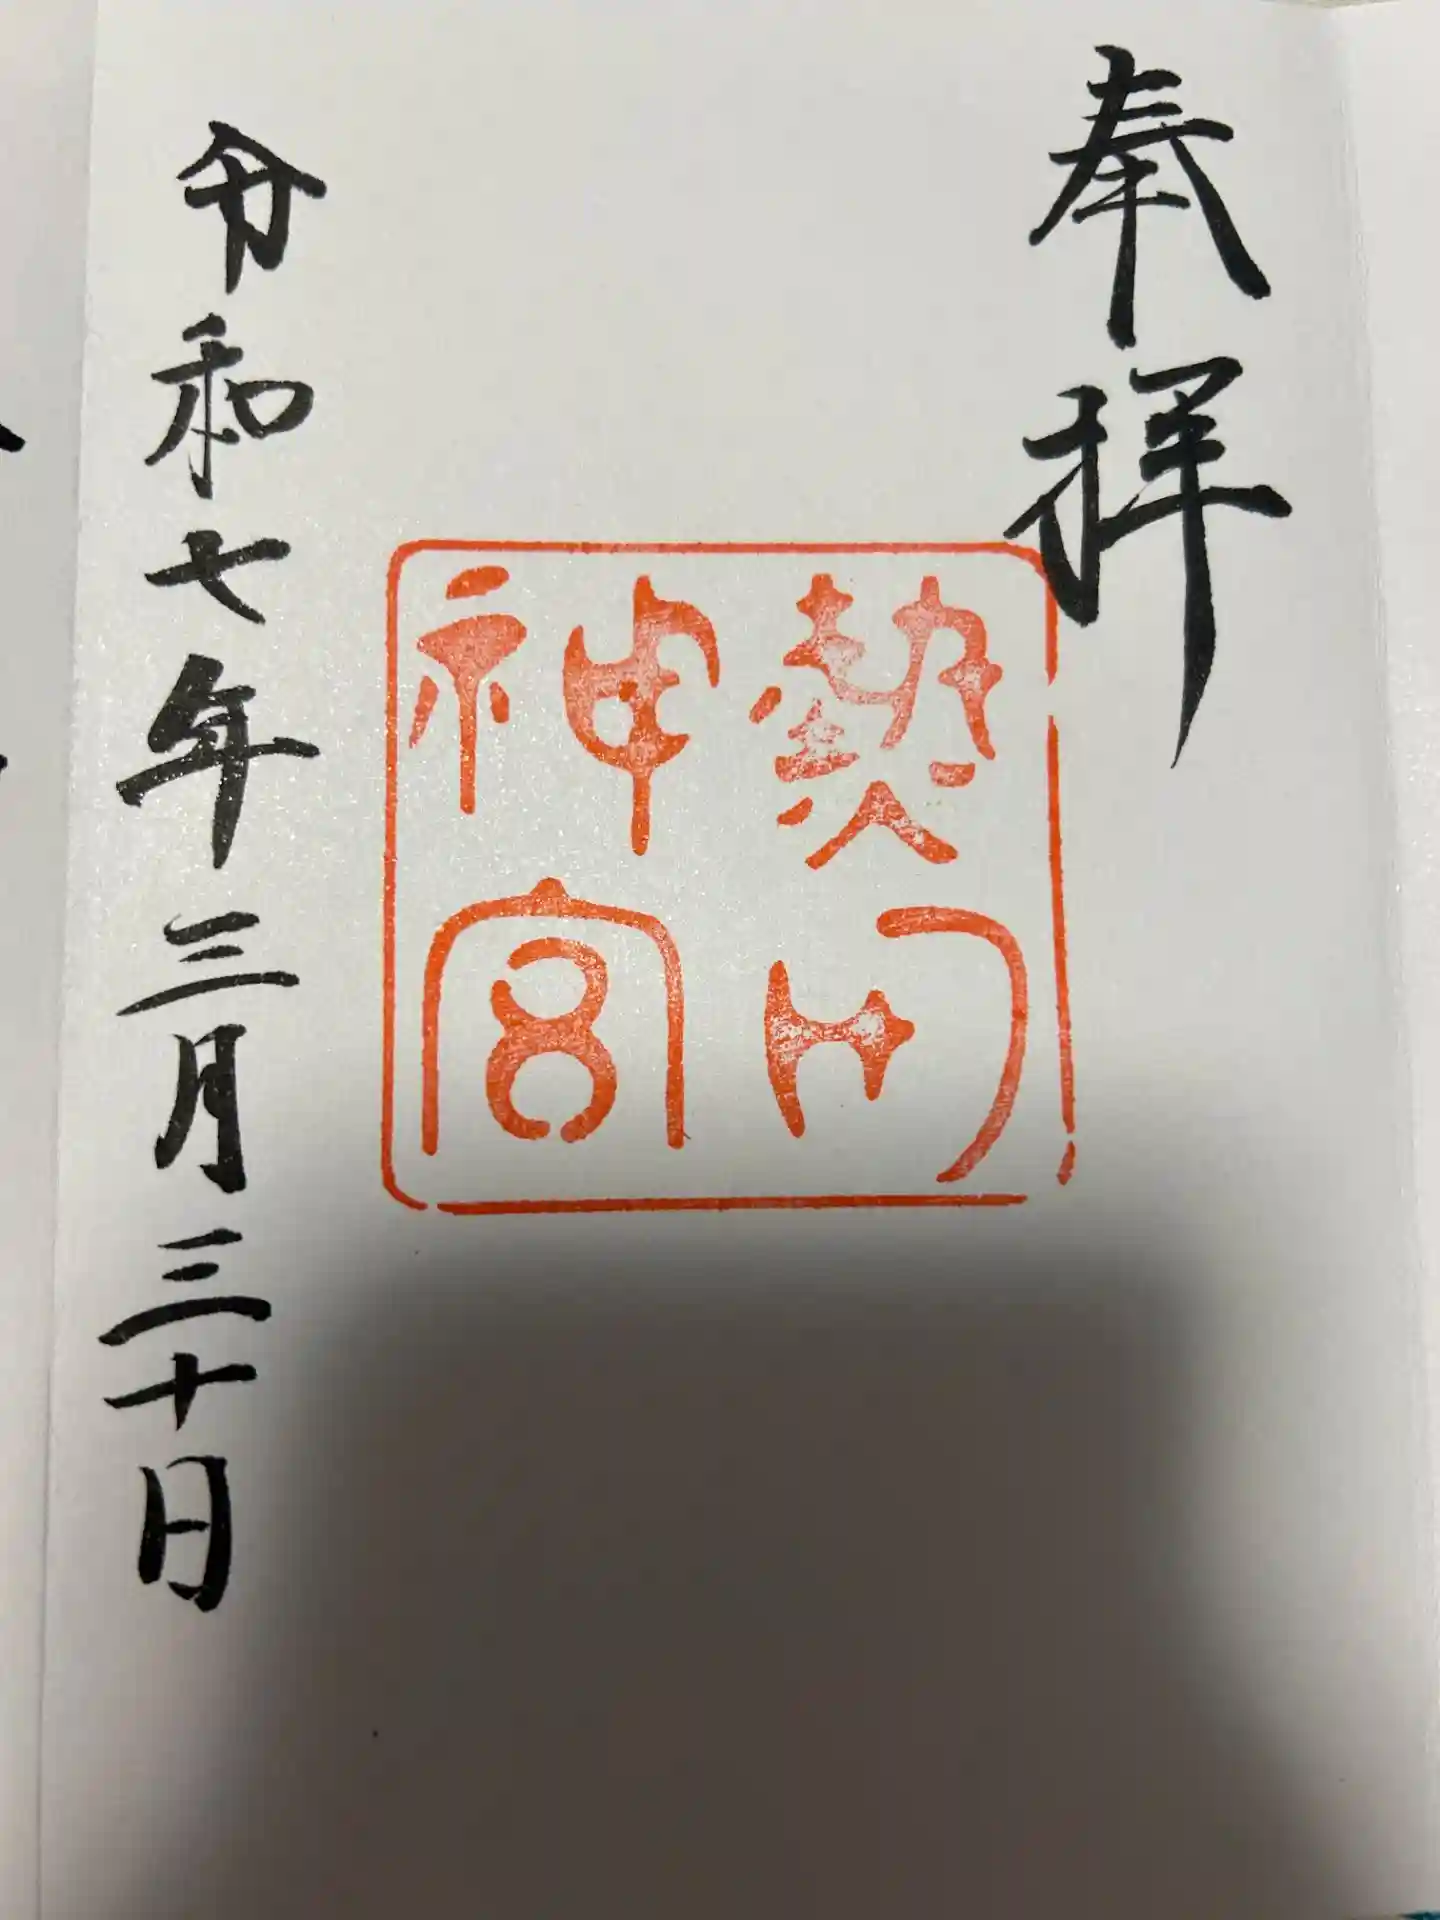 奉拝
熱田
神宮
令和七年三月三十日